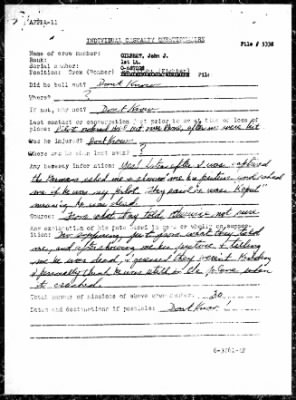 AFPPA-11
INDIVIDUAL CASUALTY QUESTIONNAIRE
File # 5338
Name of crew member: GILBERT, John J.
Rank: 1st Lt.
Serial number:
Position: Crew (Bomber)
Did he bail out? Don't Know
Where? ?
If not, why not? Don't Know
Last contact or conversation just prior to or at time of loss of
plane: Pilot ordered bail out over Bonn, after we were hit
Was he injured? Don't Know
Where was he when last seen? ?
Any hearsay information: Yes! Later after I was captured
the Germans called me & showed me his picture and asked
me if he was my pilot. They said he was "Kaput"
meaning he was dead.
Source: From what they told, otherwise not sure
Any explanation of his fate based in part or wholly on supposition:
, just from what they told
me, and after showing me his picture & telling
me he was dead, I guessed they weren't kidding
I personally think he was still in the plane when
it crashed.
Total number of missions of above crew member: 30
Dates and destinations if possible: Don't Know